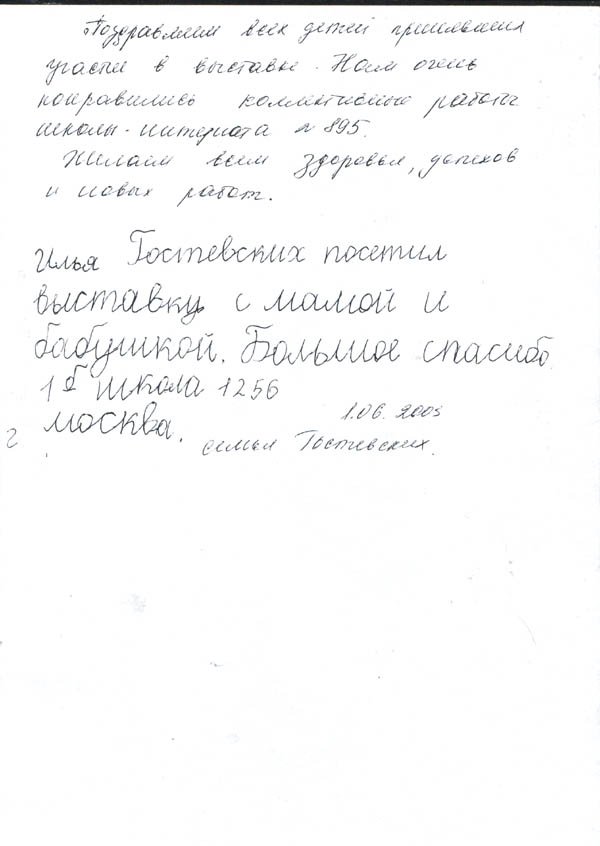 Поздравляем всех детей принявших
участие в выставке. Нам очень
понравились коллективные работы
школы-интерната №895.
Желаем всем здоровья, успехов
и новых работ.
Илья Гостевских посетил
выставку с мамой и
бабушкой. Большое спасибо
1 б школа 1256
г Москва.
1.06.2005
семья Гостевских.